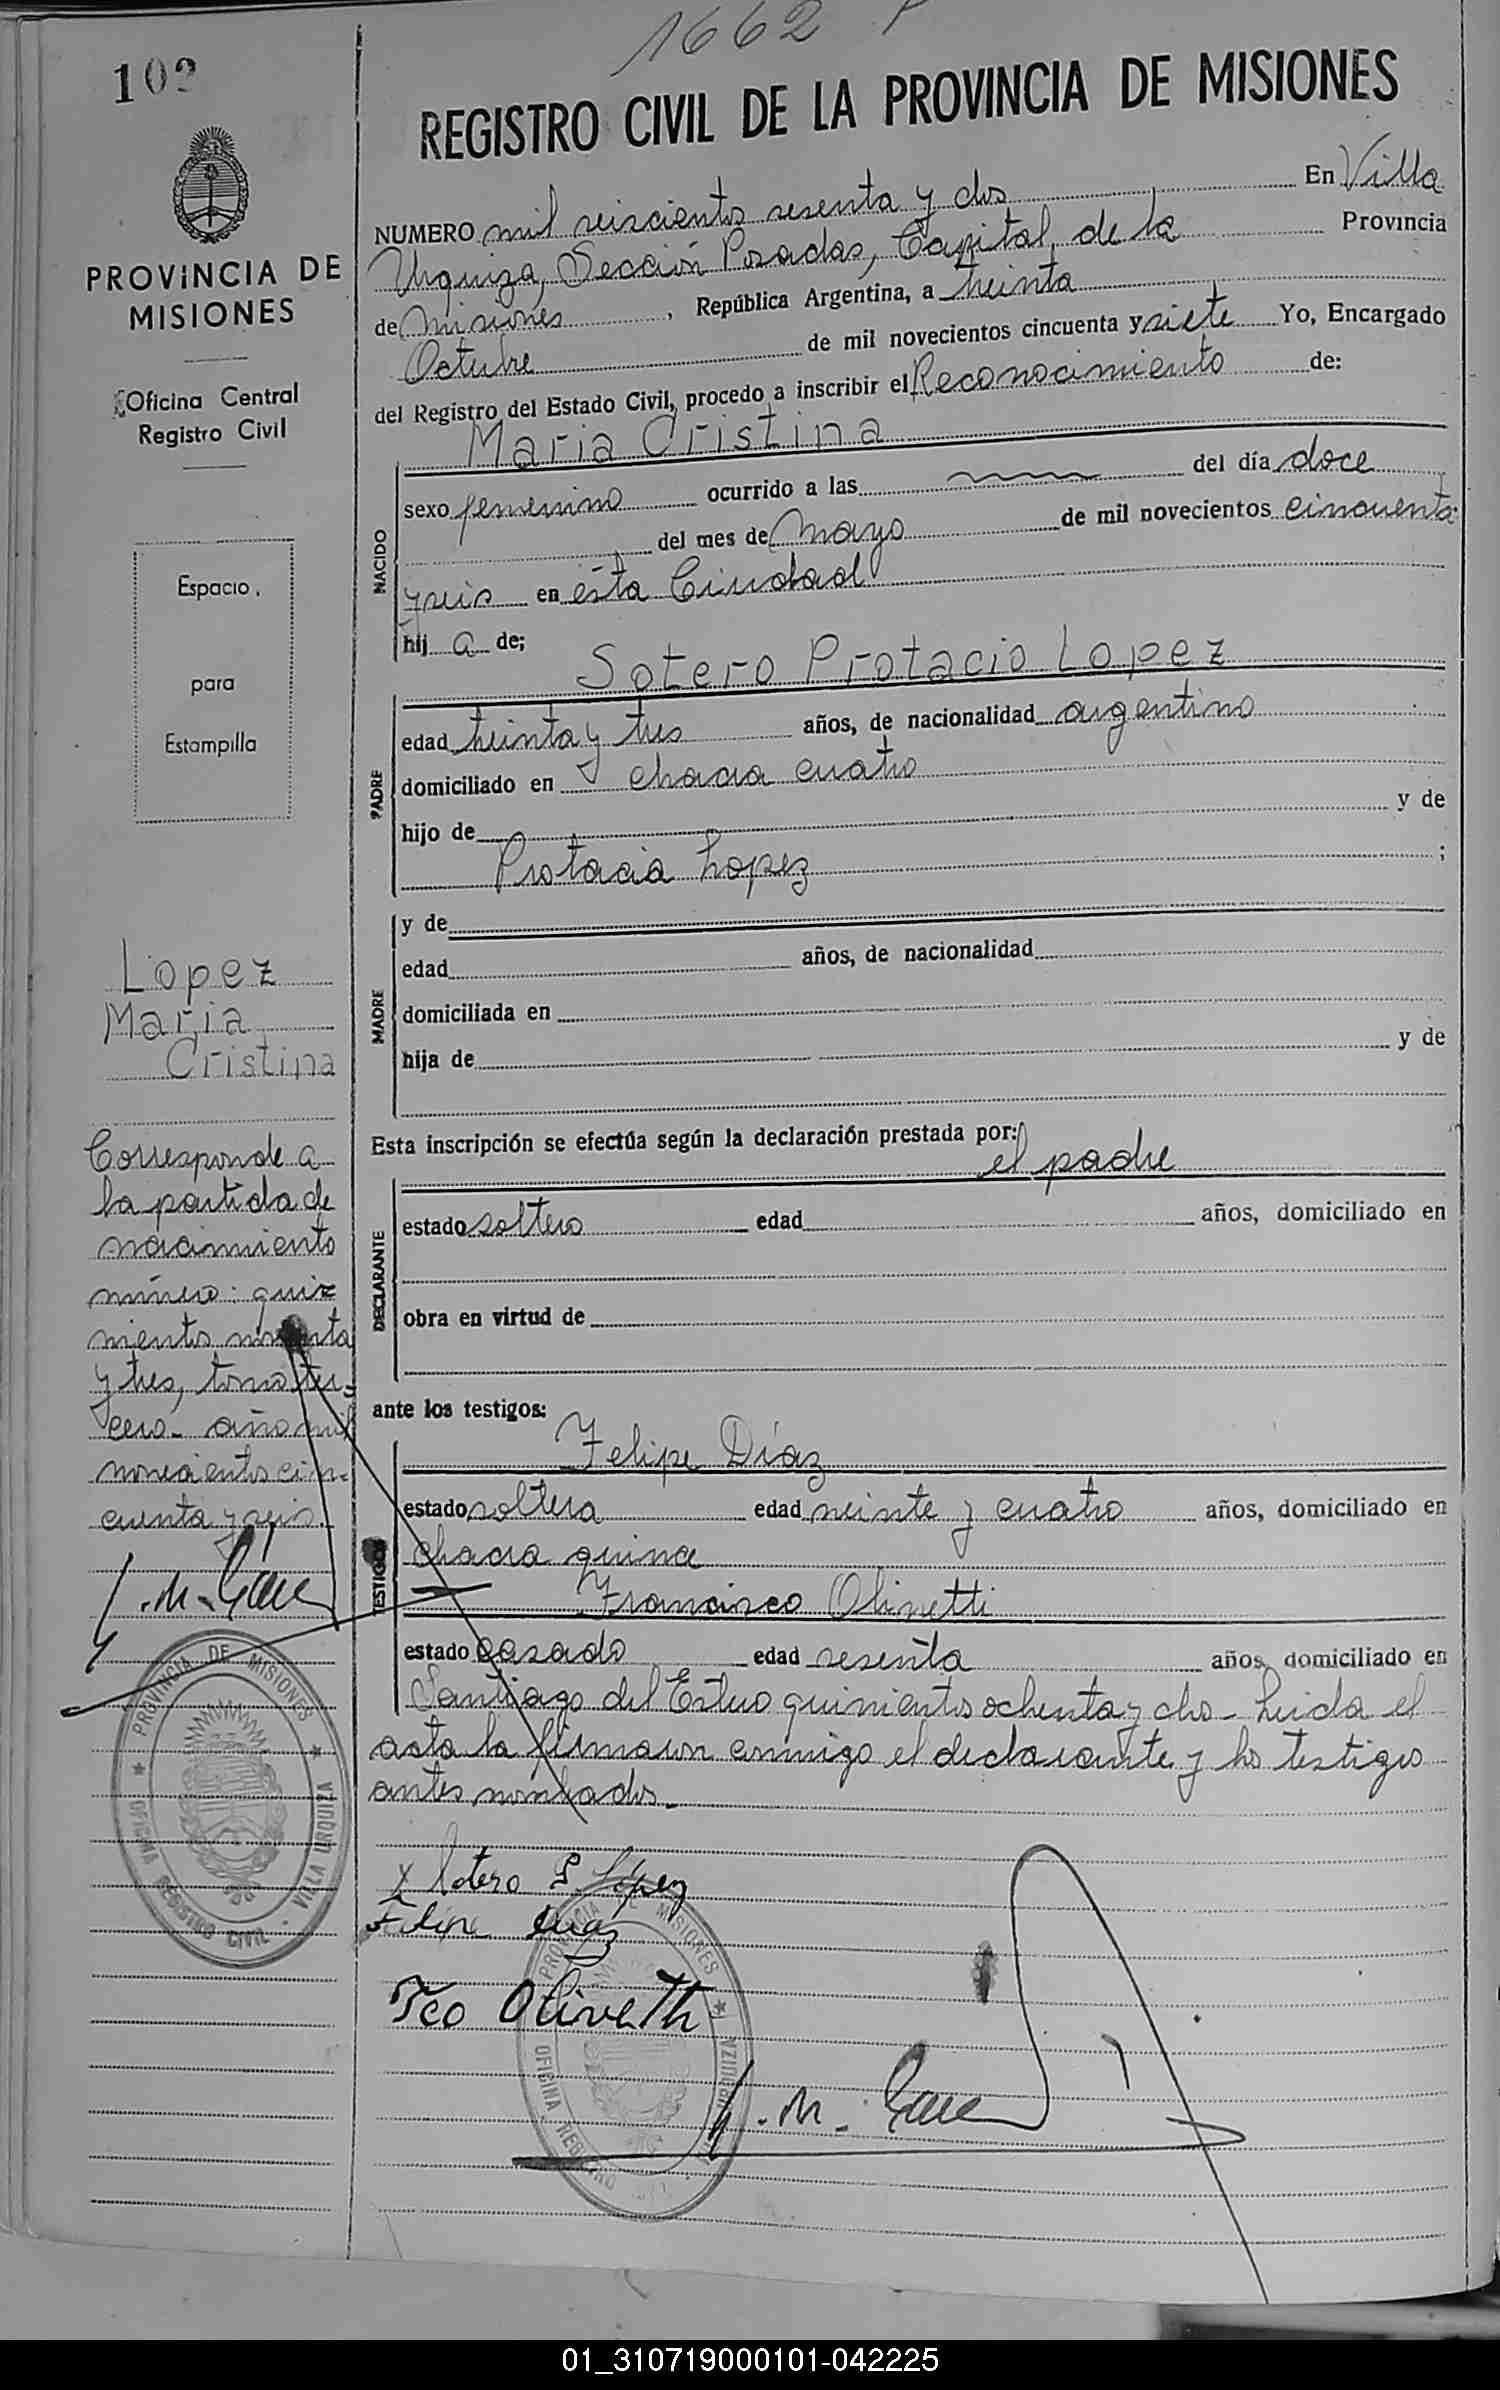 1662 P
102
REGISTRO CIVIL DE LA PROVINCIA DE MISIONES
PROVINCIA DE
MISIONES
Oficina Central
Registro Civil
Espacio
para
Estampilla
NUMERO mil seiscientos sesenta y dos En Villa
Urquiza, Sección Posadas, Capital, de la Provincia
de Misiones, República Argentina, a treinta
Octubre de mil novecientos cincuenta y siete Yo, Encargado
del Registro del Estado Civil, procedo a inscribir el Reconocimiento de:
Maria Cristina
NACIDO
sexo femenino ocurrido a las del día doce
del mes de Mayo de mil novecientos cincuenta
y seis en ésta Ciudad
hij a de;
Sotero Protacio Lopez
PADRE
edad treinta y tres años, de nacionalidad argentino
domiciliado en chacra cuatro
hijo de y de
Protacia Lopez ;
MADRE
y de
edad años, de nacionalidad
domiciliada en
hija de y de
Lopez
Maria
Cristina
Corresponde a
la partida de
nacimiento
número: quin
nientos noventa
y tres, tomo ter-
cero - año mil
novecientos cin-
cuenta y seis.
Esta inscripción se efectúa según la declaración prestada por:
el padre
DECLARANTE
estado soltero edad años, domiciliado en
obra en virtud de
ante los testigos:
TESTIGOS
Felipe Díaz
estado soltera edad veinte y cuatro años, domiciliado en
chacra quince
Francisco Olivetti
estado casado edad sesenta años, domiciliado en
Santiago del Estero quinientos ochenta y dos - Leida el
acta la firmaron conmigo el declarante y los testigos
antes nombrados.-
PROVINCIA DE MISIONES
OFICINA REGISTRO CIVIL - VILLA URQUIZA
x Sotero P. López
Felipe Diaz
Fco Olivetti
PROVINCIA DE MISIONES
OFICINA REGISTRO URQUIZA
01_310719000101-042225